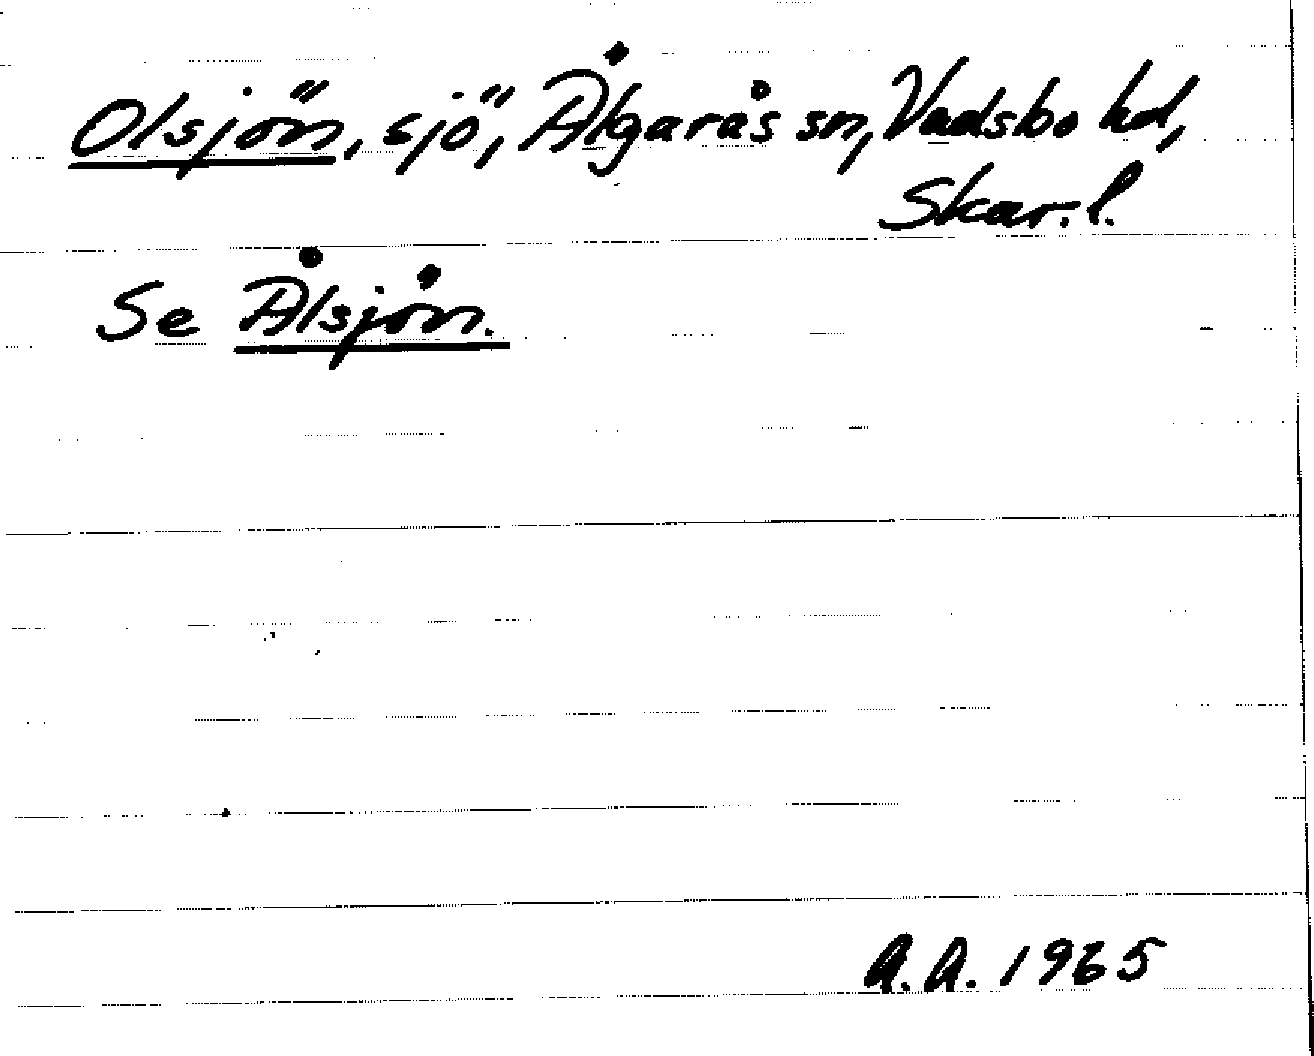 Olsjön, sjö, Ålgarås sn, Vadsbo hd,
Skar. l.
Se Ålsjön.
A.A. 1965